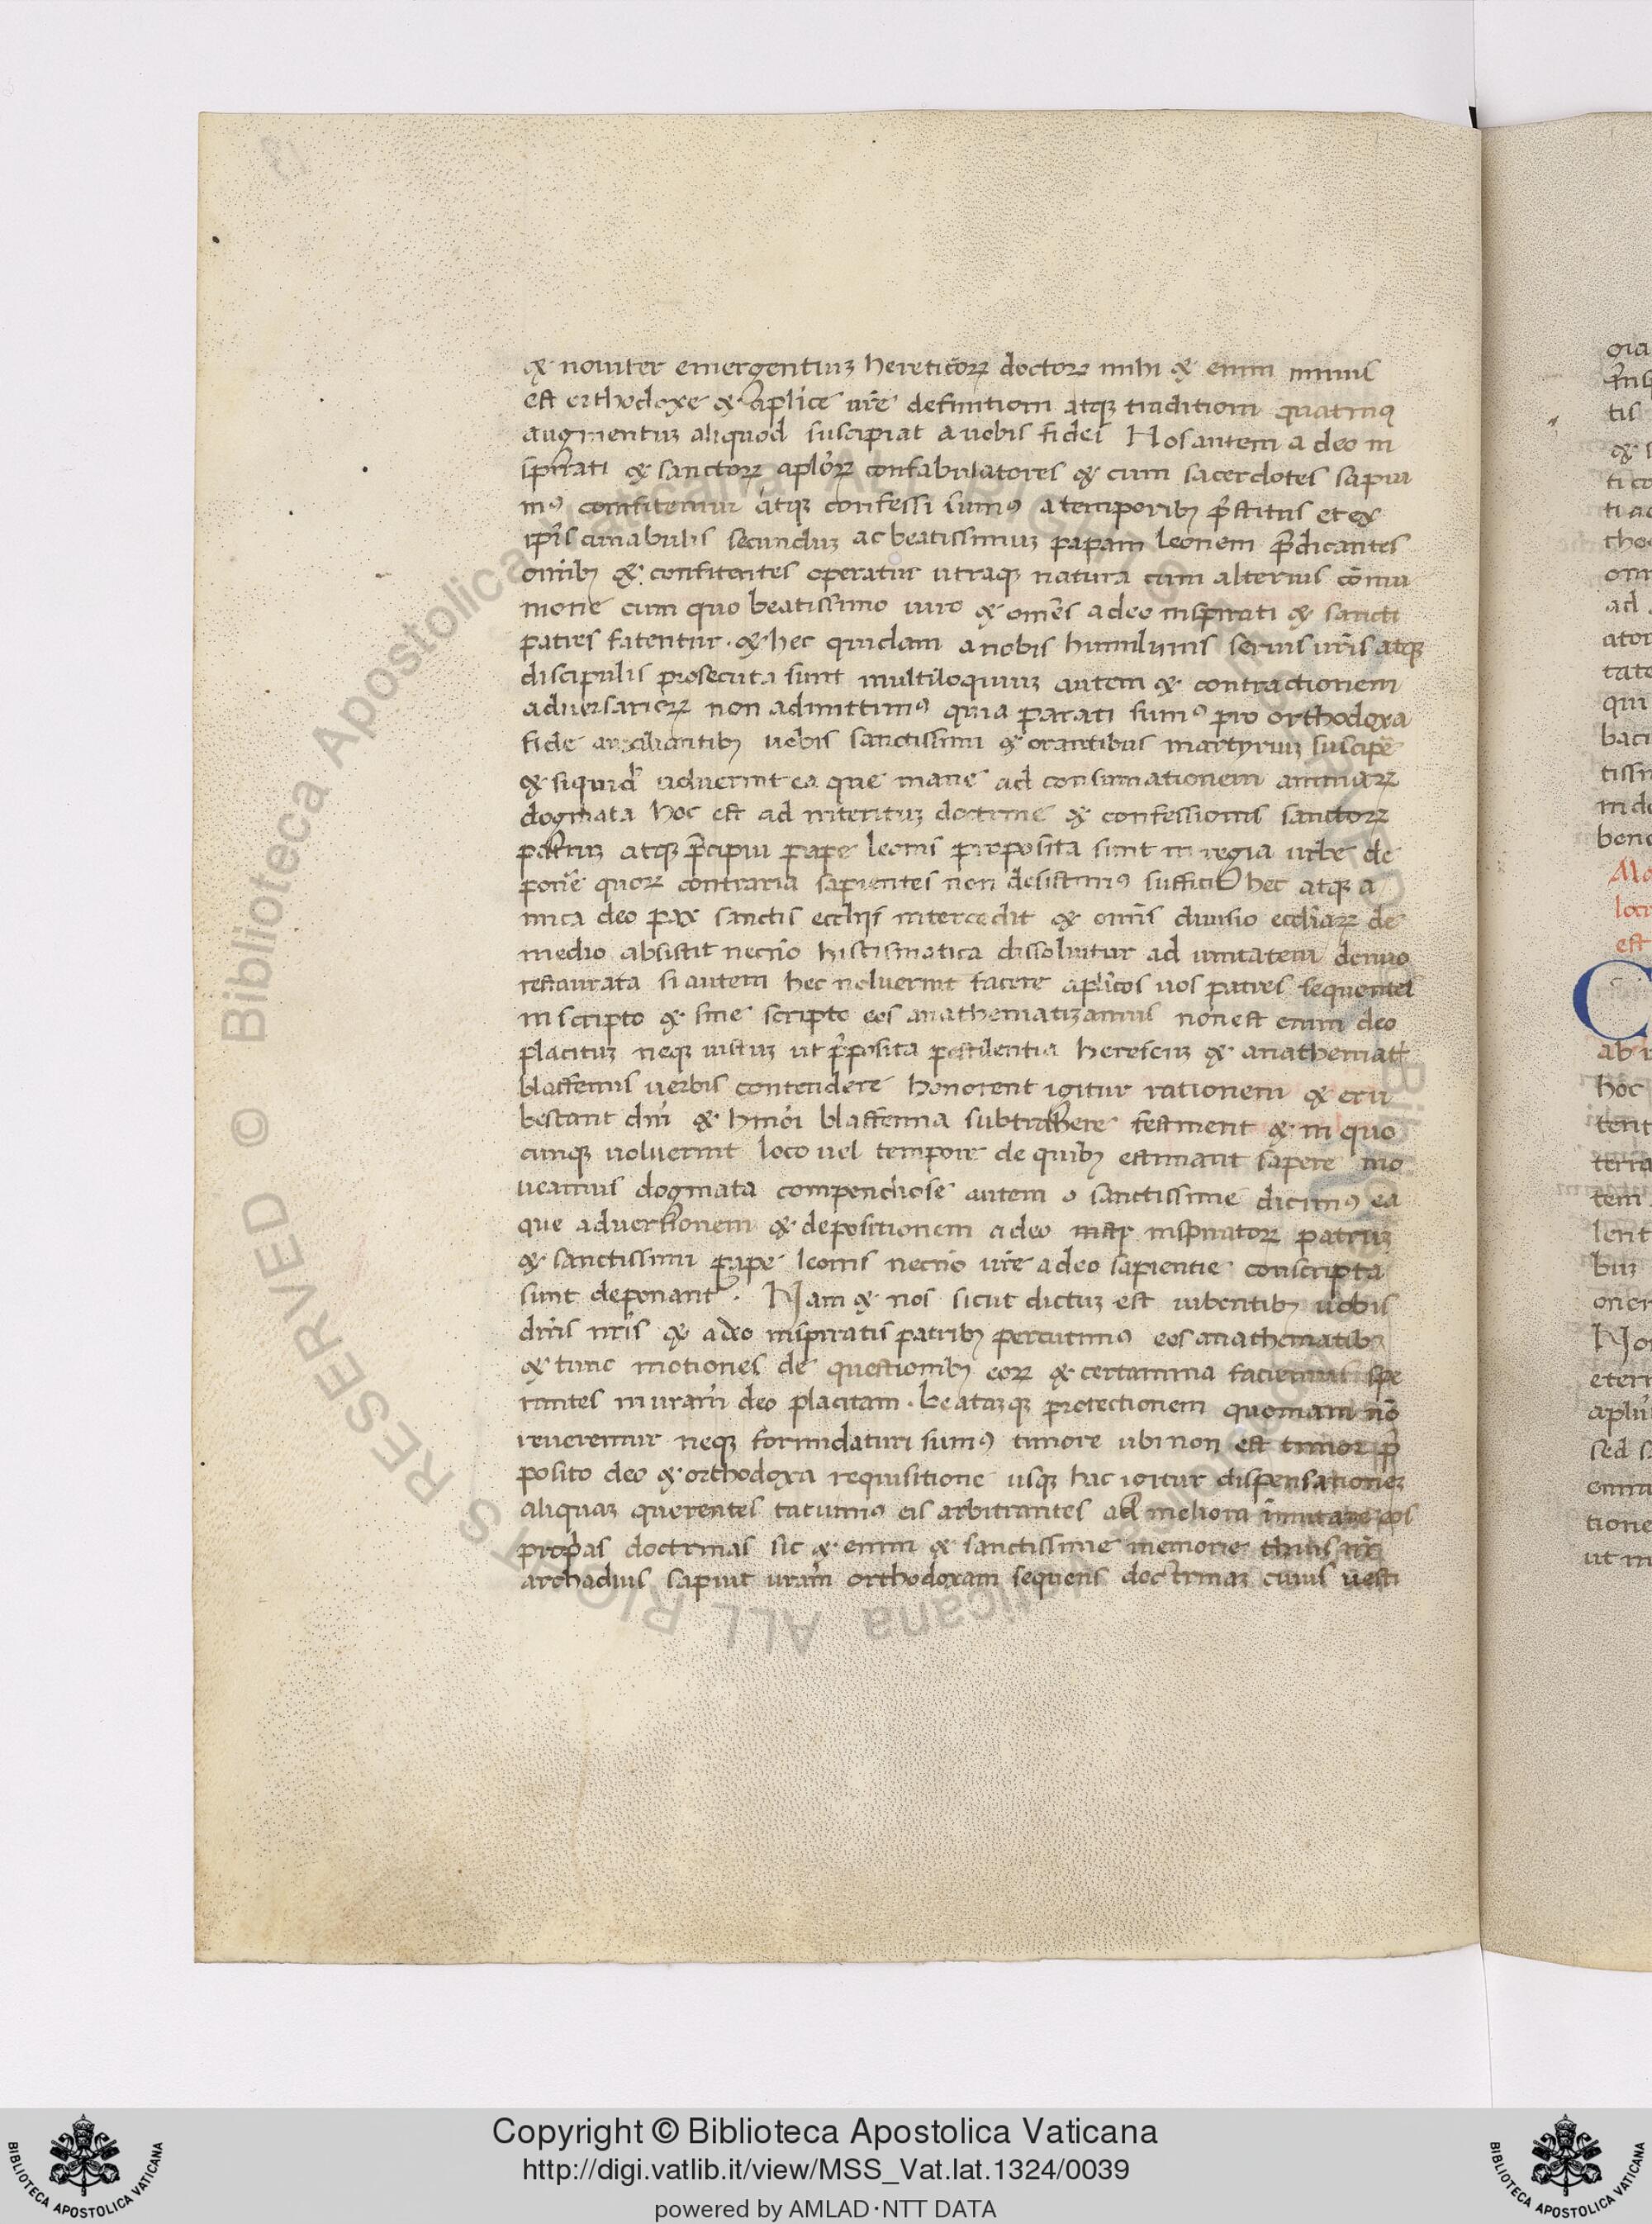 & nouiter emergentiuꝫ hereticoꝝ doctoꝝ nihil & enim minus
est orthodoxe & aplice nr̄e definitioni atqꝫ traditioni quatinꝰ
augmentuꝫ aliquod suscipiat a uobis fidei Nos autem a deo in
spirati & sanctoꝝ aploꝝ confabulatores & cum sacerdotes sapiui
mꝰ confitemur atqꝫ confessi sumꝰ a temporibꝫ p̄stitus et ex
ip̄is cunabulis secunduꝫ ac beatissimuꝫ papam leonem p̄dicantes
omībꝫ & confitentes operatur utraqꝫ natura cum alterius cōmu
nione cum quo beatissimo uiro & omēs a deo inspirati & sancti
patres fatentur . & hec quidam a nobis humilimis seruis ur̄is atqꝫ
discipulis prosecuta sunt multiloquiuꝫ autem & contractionem
aduersarioꝝ non admittimꝰ quia parati sumꝰ pro orthodoxa
fide auxiliantibꝫ uobis sanctissimi & orantibus martyriuꝫ suscipe
& siquid uoluerint ea que mane ad consumationem animaꝝ
dogmata hoc est ad interituꝫ doctrine & confessionis sanctoꝝ
patruꝫ atqꝫ p̄cipui pape leonis proposita sunt in regia urbe de
ponē quoꝝ contraria sapientes non desistimꝰ sufficit hec atqꝫ a
mica deo pax sanctis eccl̄ijs intercedit & omīs diuisio eccl̄iaꝝ de
medio absistit necnō histismatica dissoluitur ad unitatem denuo
restaurata si autem hec noluerint facere aplicos uos patres sequentes
in scripto & sine scripto eos anathematizamus non est enim deo
placituꝫ neqꝫ iustuꝫ ut p̄posita pestilentia heresiuꝫ & anathemat
blasfemis uerbis contendere honorent igitur rationem & eru
bescant dn̄i & hmōi blasfemia subtrahere festinent & in quo
cunqꝫ uoluerint loco uel tempore de quibꝫ estimant sapere mo
ueamus dogmata compendiose autem o sanctissime dicimꝰ ea
que aduersionem & depositionem a deo inspiratoꝝ patruꝫ
& sanctissimi pape leonis necnō ur̄e a deo sapientie conscripta
sunt deponant . Nam & nos sicut dictuꝫ est iubentibꝫ uobis
dn̄is nr̄is & a deo inspiratis patribꝫ percutimꝰ eos anathematibꝫ
& tunc motiones de questionibꝫ eoꝝ & certamina faciemus spe
rantes in uram̄ deo placitam . beatāqꝫ protectionem quoniam nō
reueremur neqꝫ formidaturi sumꝰ timore ubi non est timor p̄
posito deo & orthodoxa requisitione usqꝫ huc igitur dispensationeꝫ
aliquaꝫ querentes tacuimꝰ eis arbitrantes ad meliora imutare eos
proprias doctrinas sic & enim & sanctissime memorie
archadius sapiuit uram̄ orthodoxam sequens doctrinaꝫ cuius uesti
Copyright © Biblioteca Apostolica Vaticana
http://digi.vatlib.it/view/MSS_Vat.lat.1324/0039
powered by AMLAD·NTT DATA